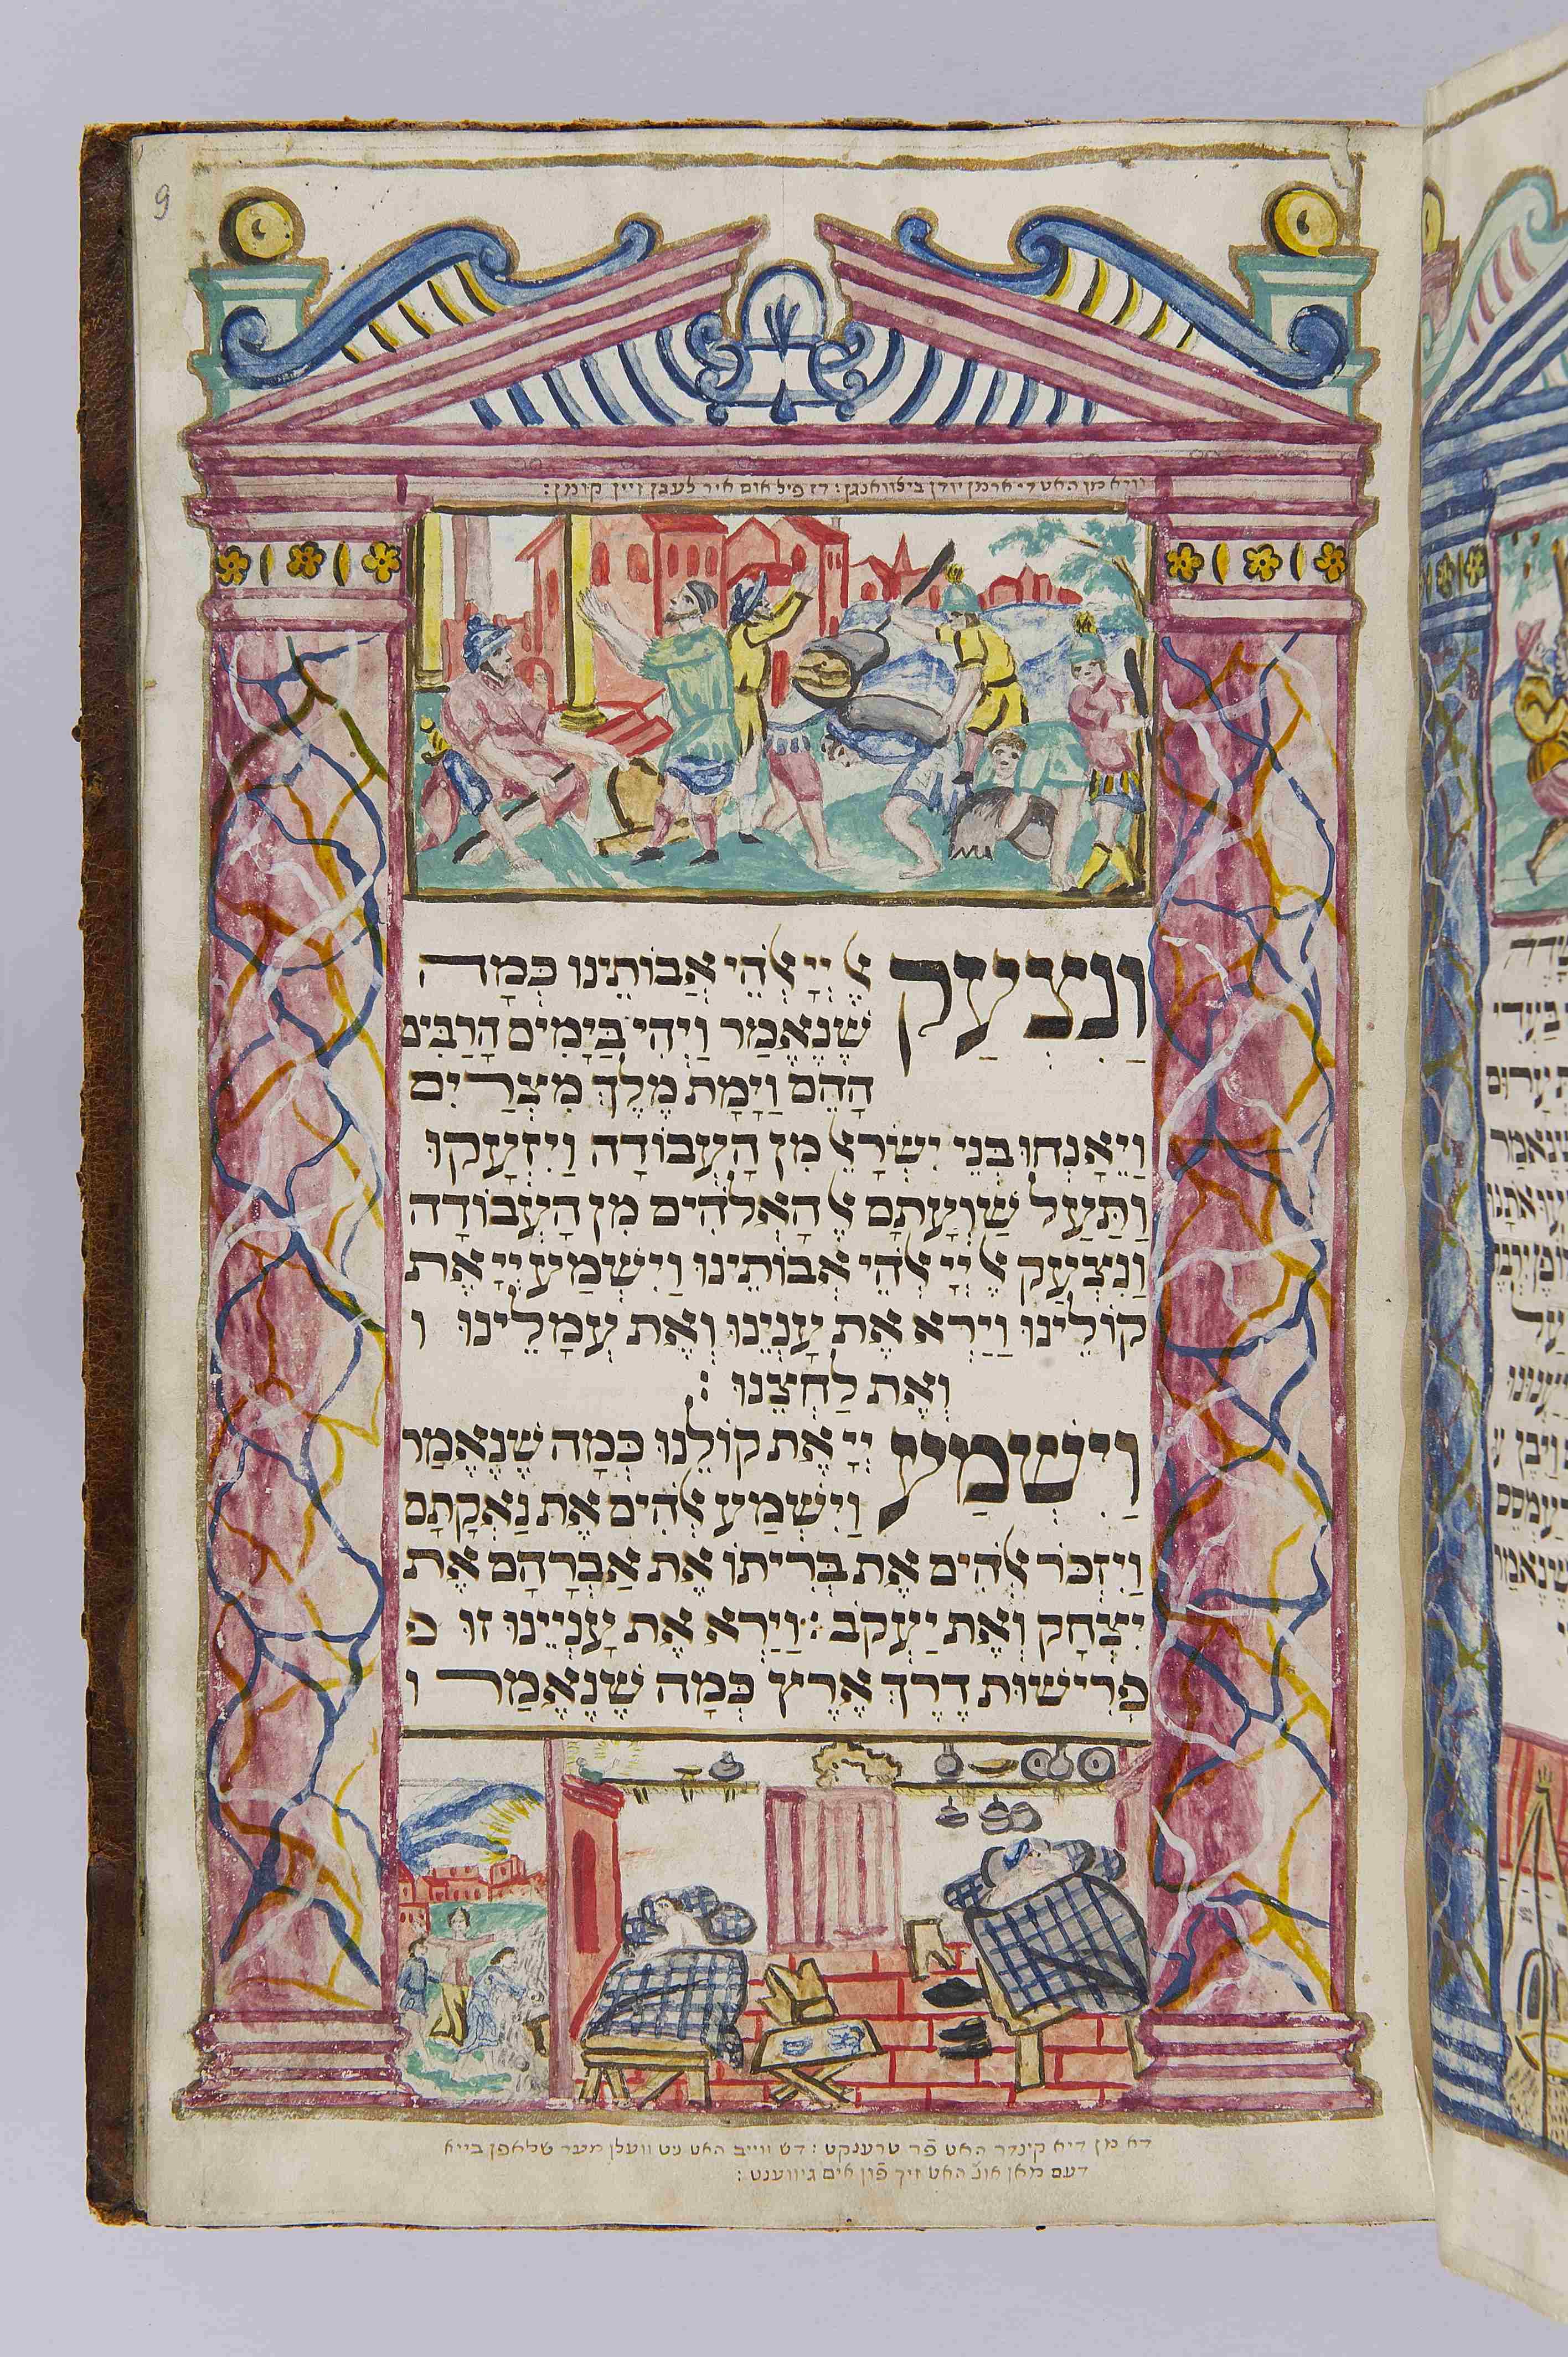 9
וויא מן האט די ארמן יודן בילוואנגן : דז פיל אום איר לעבן זיין קומן :
וַנִצְעַק אֶל יְיָ אֱלֹהֵי אֲבוֹתֵינוּ כְּמָה
שֶׁנֶאֱמַר וַיְהִי בַיָמִים הָרַבִּים
הָהֵם וַיָמָת מֶלֶךְ מִצְרַיִם
וַיֵאָנְחוּ בְּנֵי יִשְׂרָאֵל מִן הָעֲבוֹדָה וַיִזְעָקוּ
וַתַּעַל שַׁוְעָתָם אֶל הָאֱלֹהִים מִן הָעֲבוֹדָה
וַנִצְעַק אֶל יְיָ אֱלֹהֵי אֲבוֹתֵינוּ וַיִשְׁמַע יְיָ אֶת
קוֹלֵינוּ וַיַרְא אֶת עָנְיֵנוּ וְאֶת עֲמָלֵינוּ ו
וְאֶת לַחְצֵנוּ :
וַיִשְׁמַע יְיָ אֶת קוֹלֵנוּ כְּמָה שֶׁנֶאֱמַר
וַיִשְׁמַע אֱלֹהִים אֶת נַאֲקָתָם
וַיִזְכֹּר אֱלֹהִים אֶת בְּרִיתוֹ אֶת אַבְרָהָם אֶת
יִצְחָק וְאֶת יַעֲקֹב : וַיַרְא אֶת עָנְיֵינוּ זוּ פ
פְּרִישׁוּת דֶרֶךְ אֶרֶץ כְּמָה שֶׁנֶאֱמַר ו
דא מן דיא קינדר האט פֿר טרענקט : דש ווייב האט ניט וועלן מער שלאפן בייא
דעם מאן אונ' האט זיך פֿון אים גיווענט :